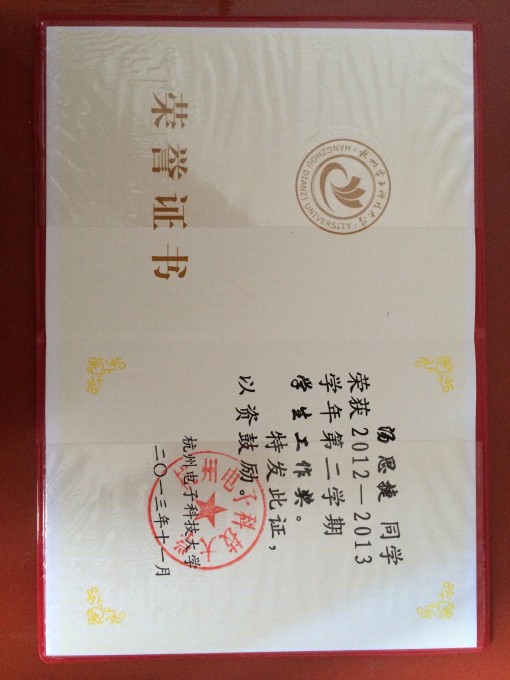 杭州电子科技大学
HANGZHOU DIANZI UNIVERSITY
荣誉证书
汤思捷 同学
荣获2012—2013
学年第二学期
学生工作奖。
特发此证,
以资鼓励。
杭州电子科技大学
二〇一三年十一月